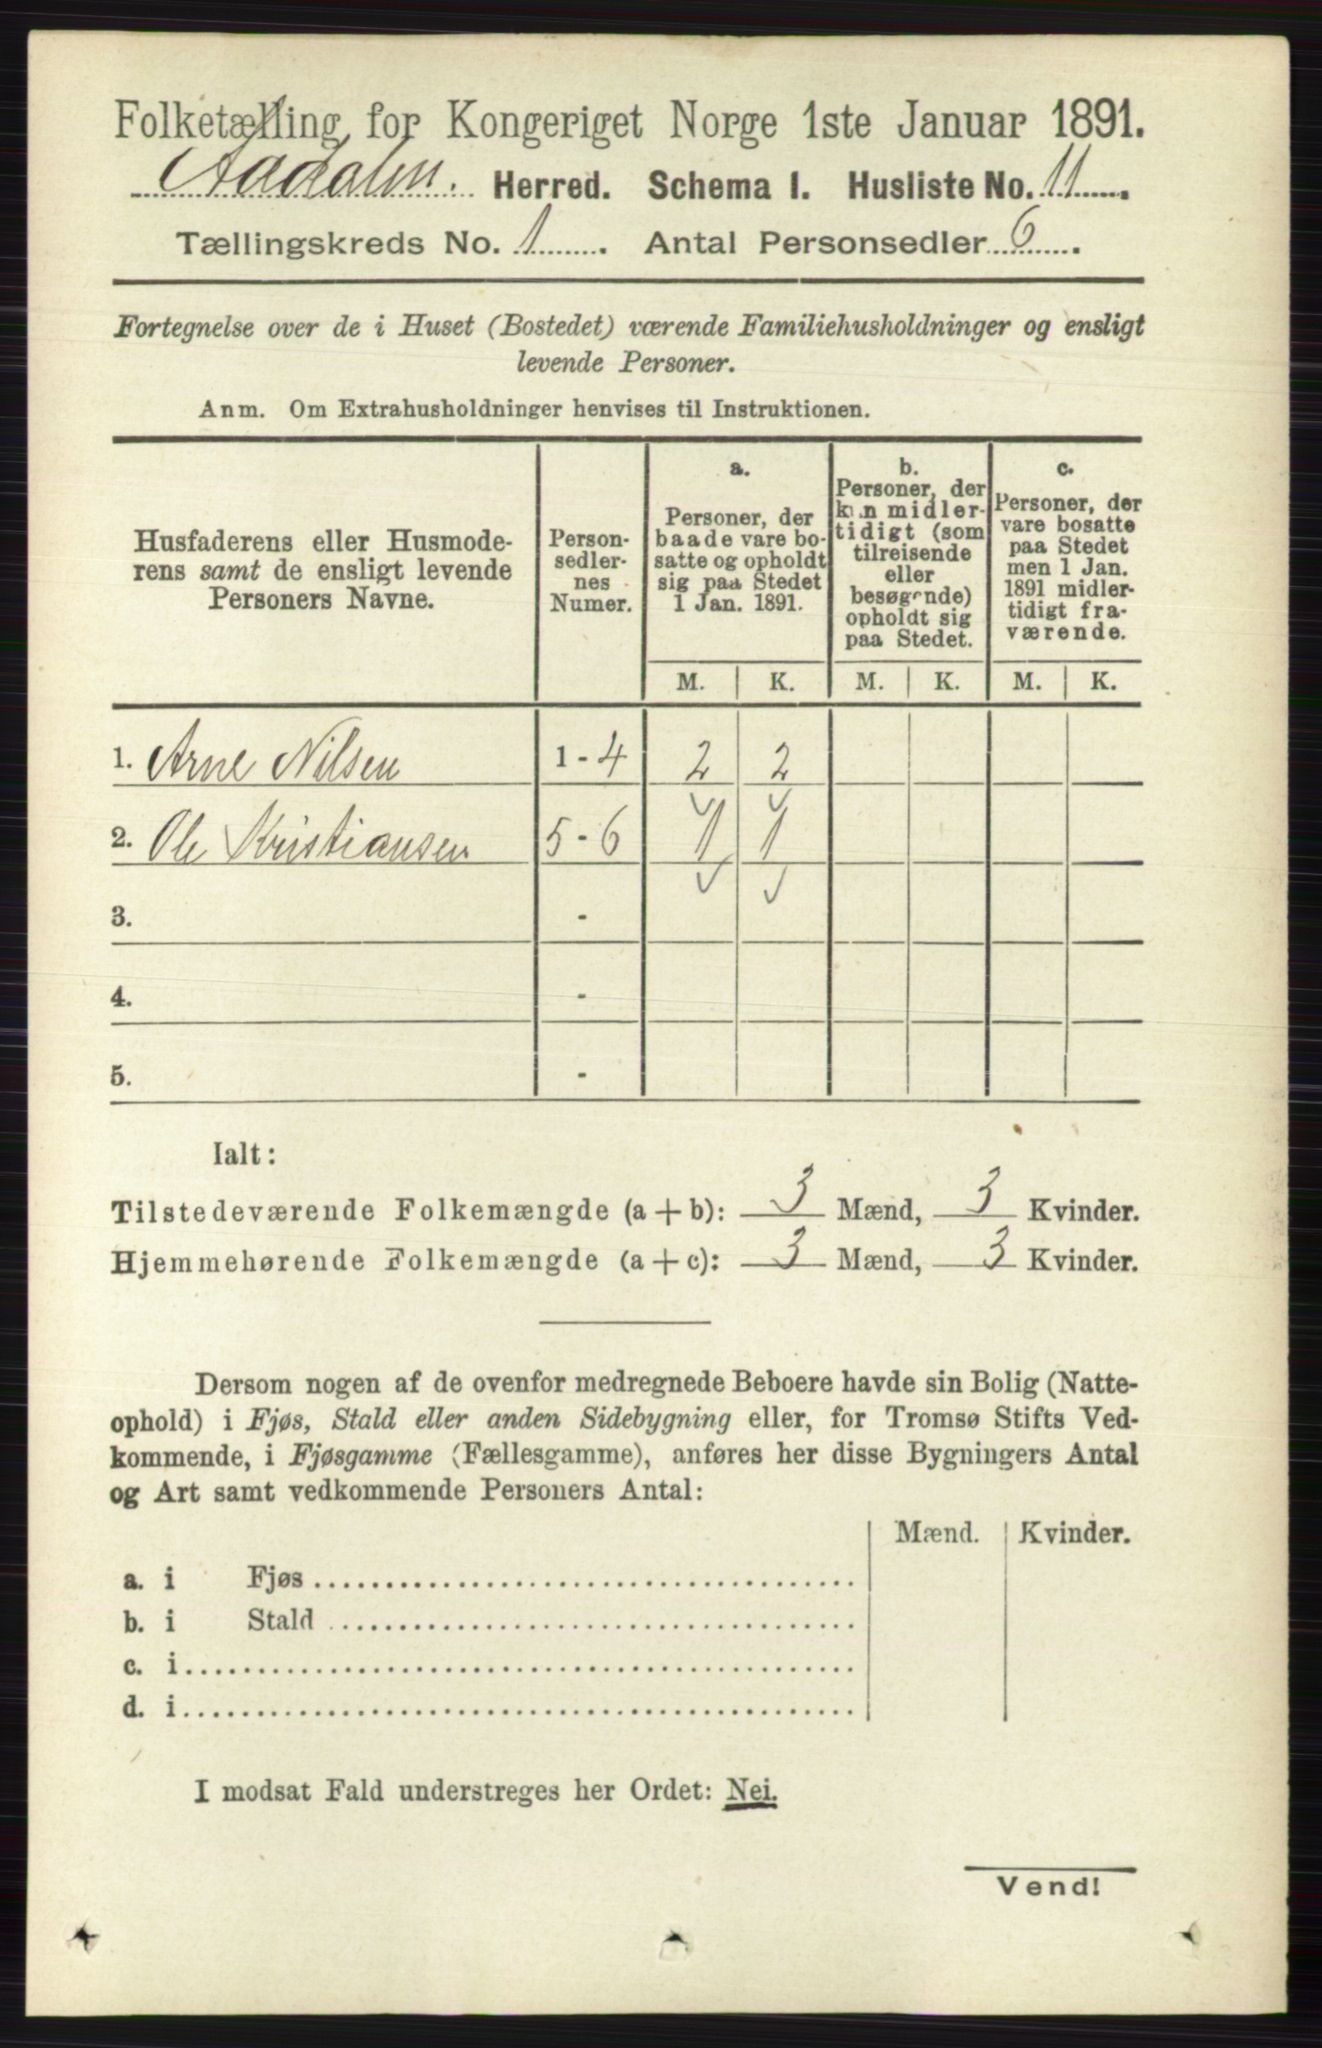 Folketælling for Kongeriget Norge 1ste Januar 1891.
Aadalen. Herred. Schema I. Husliste No. 11.
Tællingskreds No. 1. Antal Personsedler 6.
Fortegnelse over de i Huset (Bostedet) værende Familiehusholdninger og ensligt
levende Personer.
Anm. Om Extrahusholdninger henvises til Instruktionen.
Husfaderens eller Husmode-
rens samt de ensligt levende
Personers Navne.
Person-
sedler-
nes
Numer.
a.
Personer, der
baade vare bo-
satte og opholdt
sig paa Stedet
1 Jan. 1891.
b.
Personer, der
kun midler-
tidigt (som
tilreisende
eller
besøgende)
opholdt sig
paa Stedet.
c.
Personer, der
vare bosatte
paa Stedet
men 1 Jan.
1891 midler-
tidigt fra-
værende.
M. K. M. K. M. K.
1. Arne Nilsen 1 - 4 2 2
2. Ole Kristiansen 5 - 6 1 1
3. -
4. -
5. -
Ialt:
Tilstedeværende Folkemængde (a + b): 3 Mænd, 3 Kvinder.
Hjemmehørende Folkemængde (a + c): 3 Mænd, 3 Kvinder.
Dersom nogen af de ovenfor medregnede Beboere havde sin Bolig (Natte-
ophold) i Fjøs, Stald eller anden Sidebygning eller, for Tromsø Stifts Ved-
kommende, i Fjøsgamme (Fællesgamme), anføres her disse Bygningers Antal
og Art samt vedkommende Personers Antal:
Mænd. Kvinder.
a. i Fjøs
b. i Stald
c. i
d. i
I modsat Fald understreges her Ordet: Nei.
Vend!